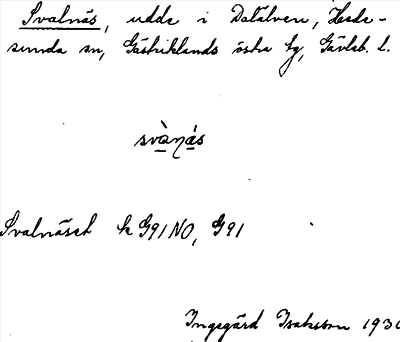 Svalnäs, udde i Dalälven, Hede-
sunda sn, Gästriklands östra tg, Gävleb. l.
svànǻs
Svalnäset k G91NO, G91
Ingegärd Isaksson 1930